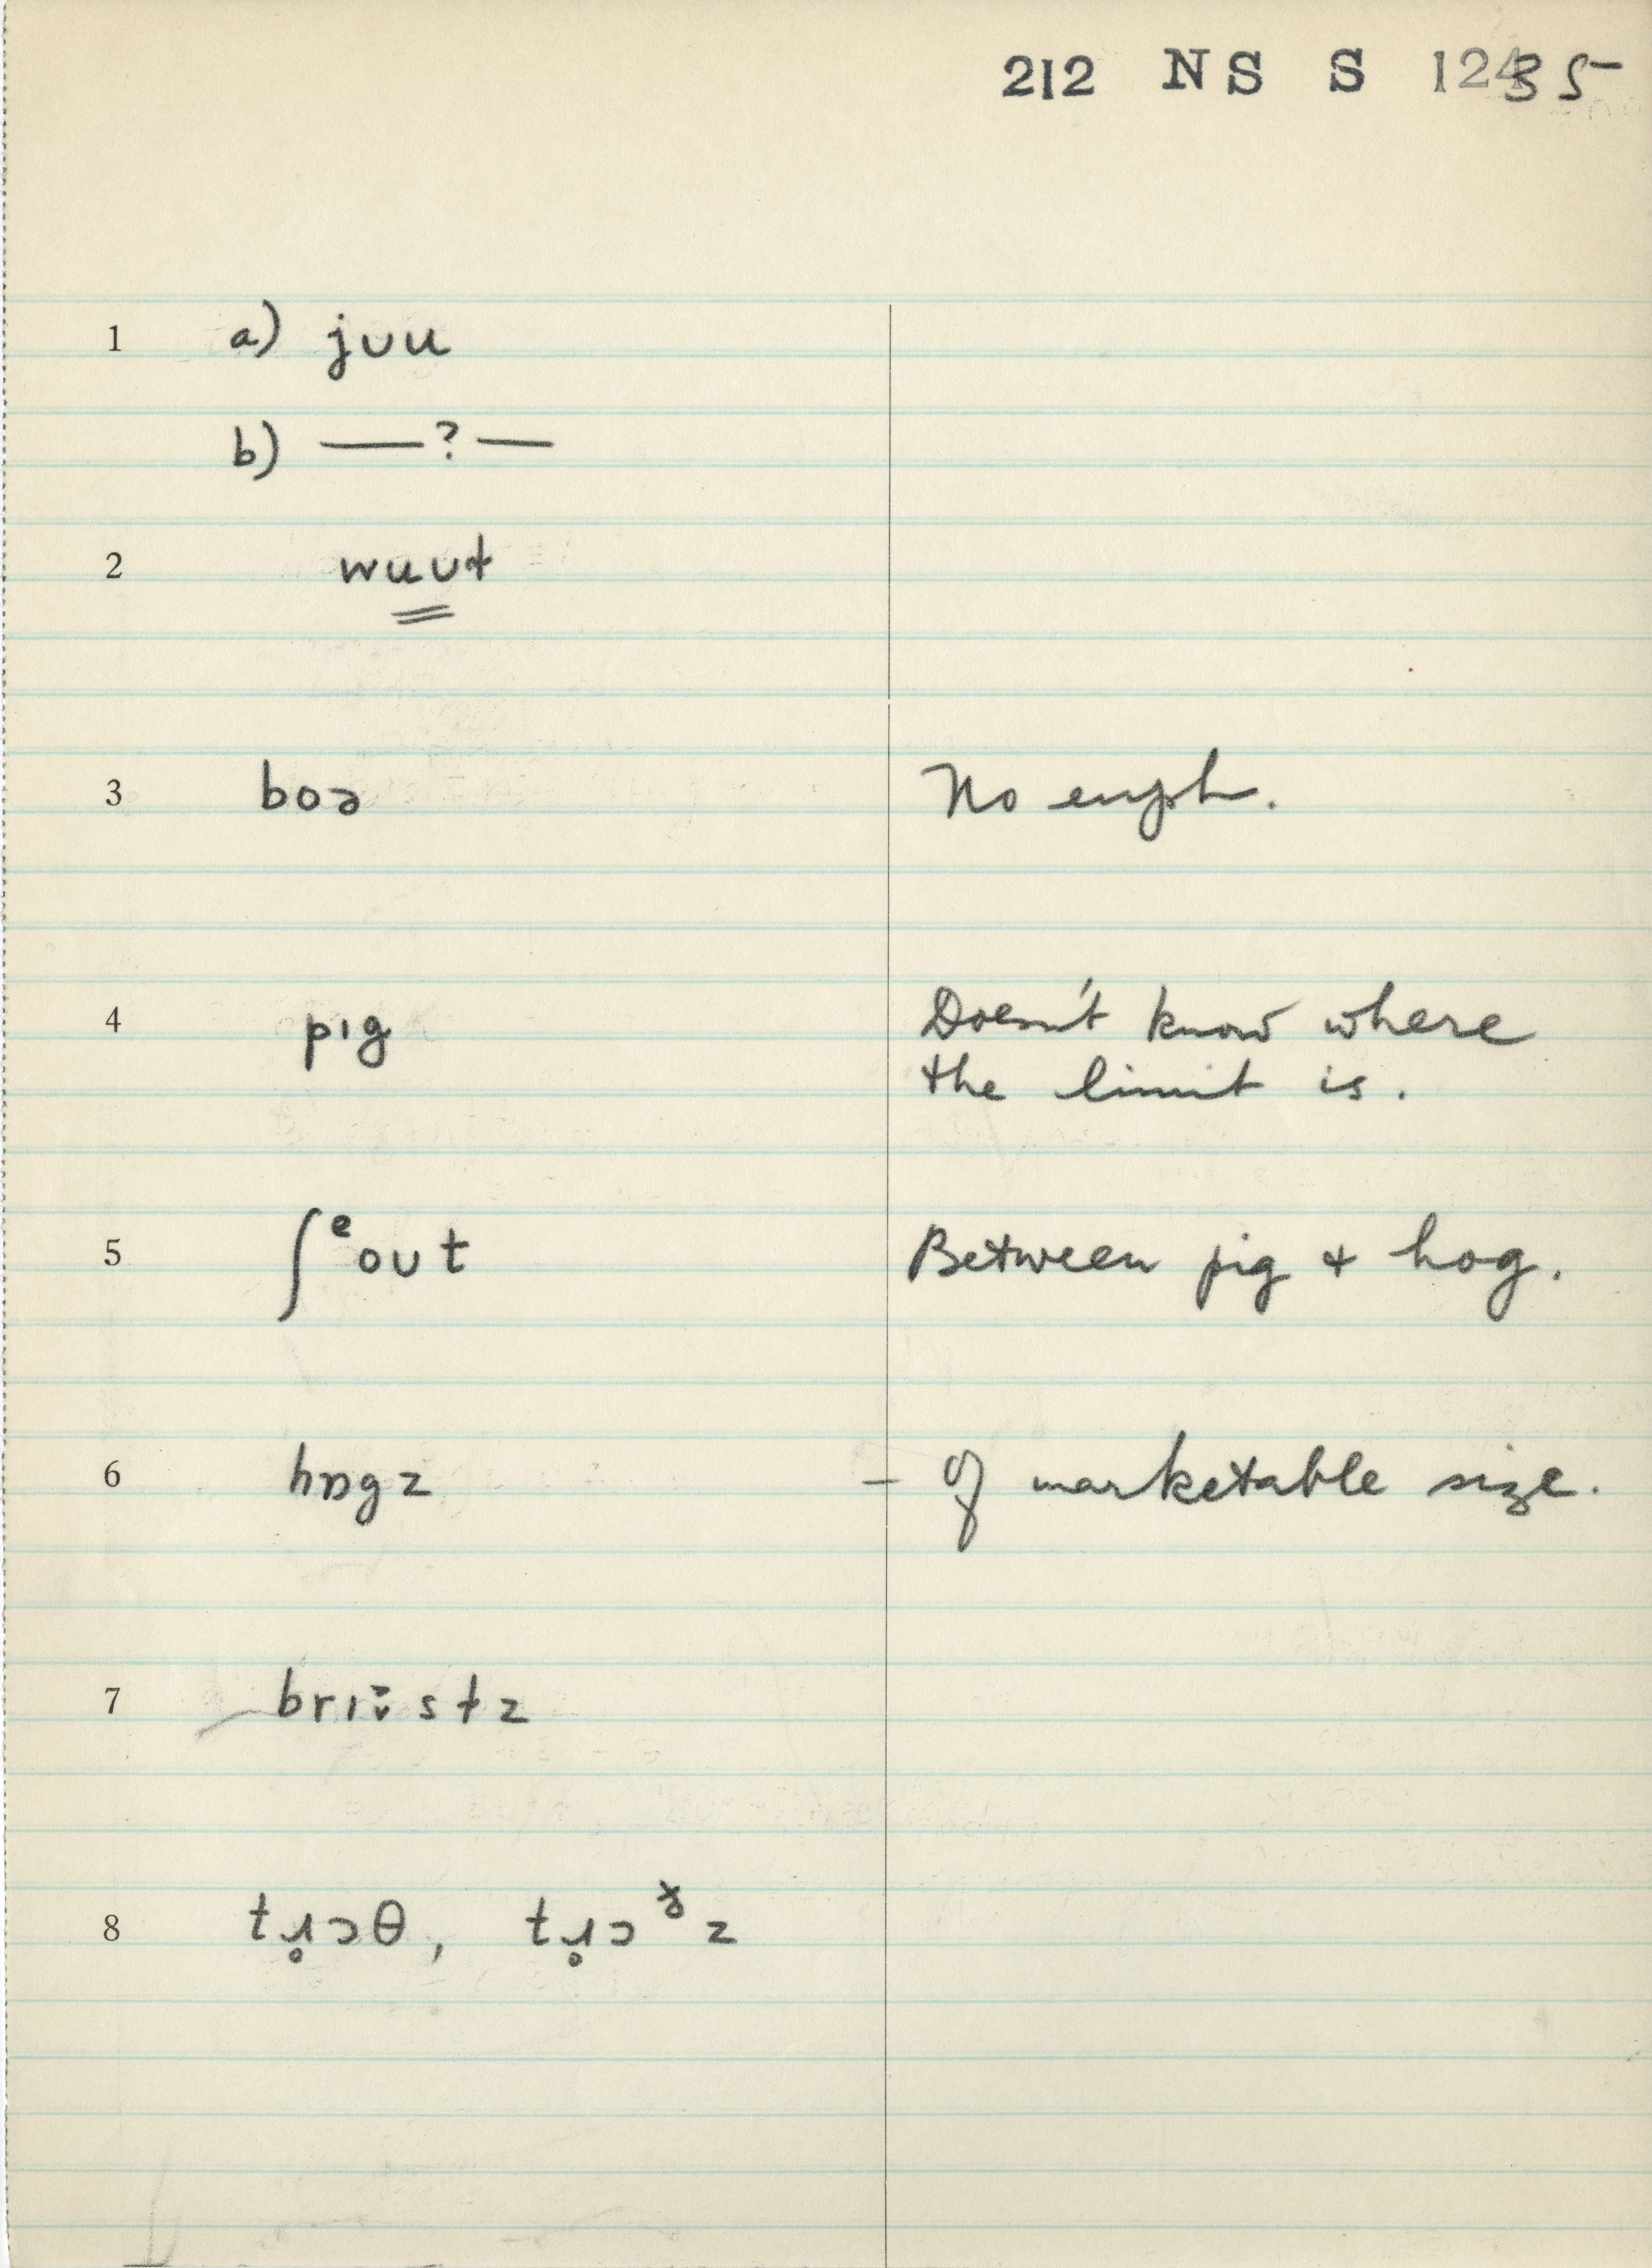 212 NS S 1235
1 a) jʊu
b) — ? —
2 wuʊt
3 boə No emph.
4 pɪg Doesn't know where
the limit is.
5 ʃᵉoʊt Between pig & hog.
6 hɒgz – of marketable size.
7 brɪstz
8 θ,